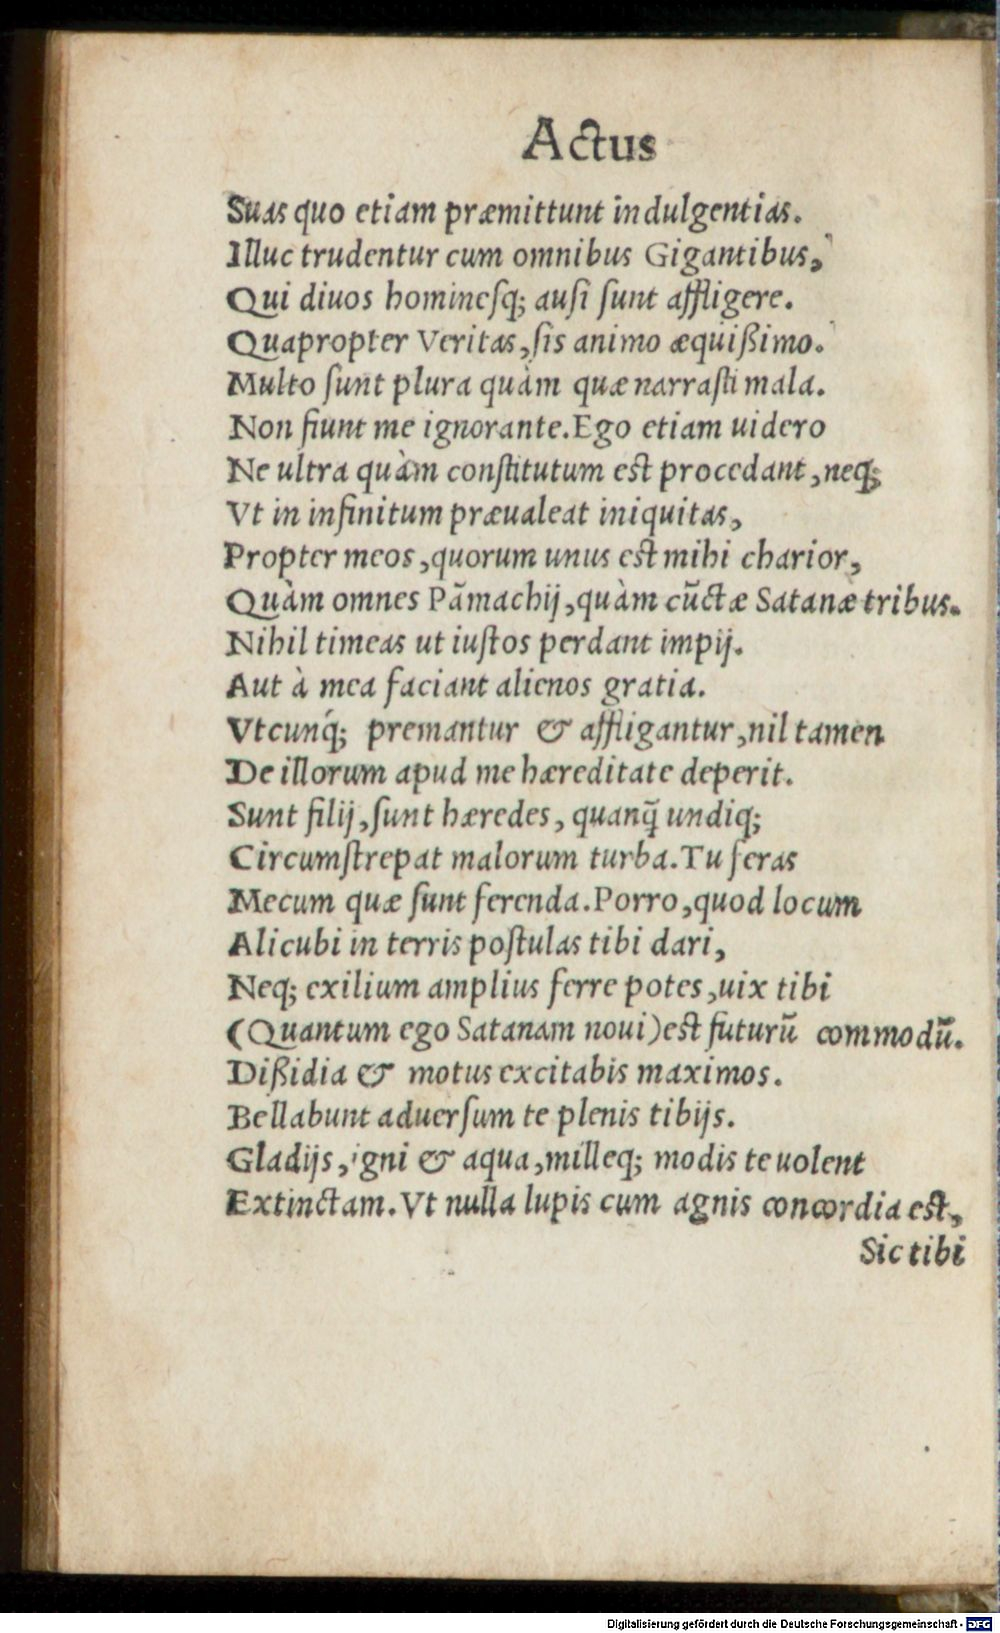 Actus
Suas quo etiam præmittunt indulgentias.
Illuc trudentur cum omnibus Gigantibus,
Qui diuos hominesq; auſi ſunt affligere.
Quapropter Veritas, ſis animo æquißimo.
Multo ſunt plura quàm quæ narraſti mala.
Non fiunt me ignorante. Ego etiam uidero
Ne ultra quàm conſtitutum est procedant, neq;
Vt in infinitum præualeat iniquitas,
Propter meos, quorum unus est mihi charior,
Quàm omnes Pãmachij, quàm cũctæ Satanæ tribus.
Nihil timeas ut iuſtos perdant impij.
Aut à mea faciant alienos gratia.
Vtcunq́; premantur & affligantur, nil tamen
De illorum apud me hæreditate deperit.
Sunt filij, ſunt hæredes, quanq̃ undiq;
Circumſtrepat malorum turba. Tu feras
Mecum quæ ſunt ferenda. Porro, quod locum
Alicubi in terris poſtulas tibi dari,
Neq; exilium amplius ferre potes, uix tibi
(Quantum ego Satanam noui) est futurũ commodũ.
Dißidia & motus excitabis maximos.
Bellabunt aduerſum te plenis tibijs.
Gladijs, igni & aqua, milleq; modis te uolent
Extinctam. Vt nulla lupis cum agnis concordia est,
Sic tibi
Digitalisierung gefördert durch die Deutsche Forschungsgemeinschaft - DFG